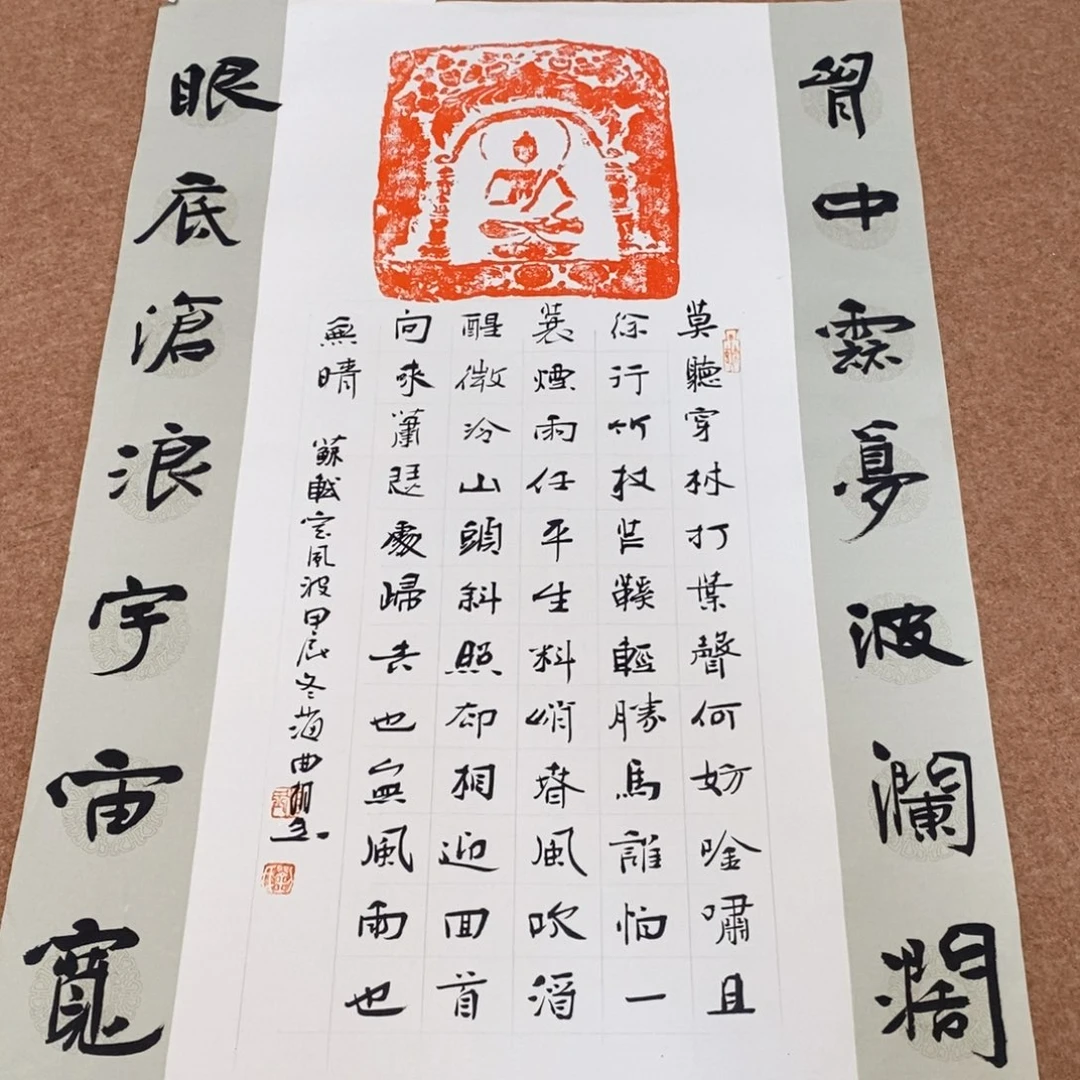 胷中雲夢波瀾濶
莫聽穿林打葉聲何妨唫嘯且
徐行竹杖芒鞵輕勝馬誰怕一
蓑煙雨任平生料峭春風吹酒
醒微冷山頭斜照却相迎回首
向來蕭瑟處歸去也無風雨也
無晴
蘇軾定風波甲辰冬
眼底滄浪宇宙寬